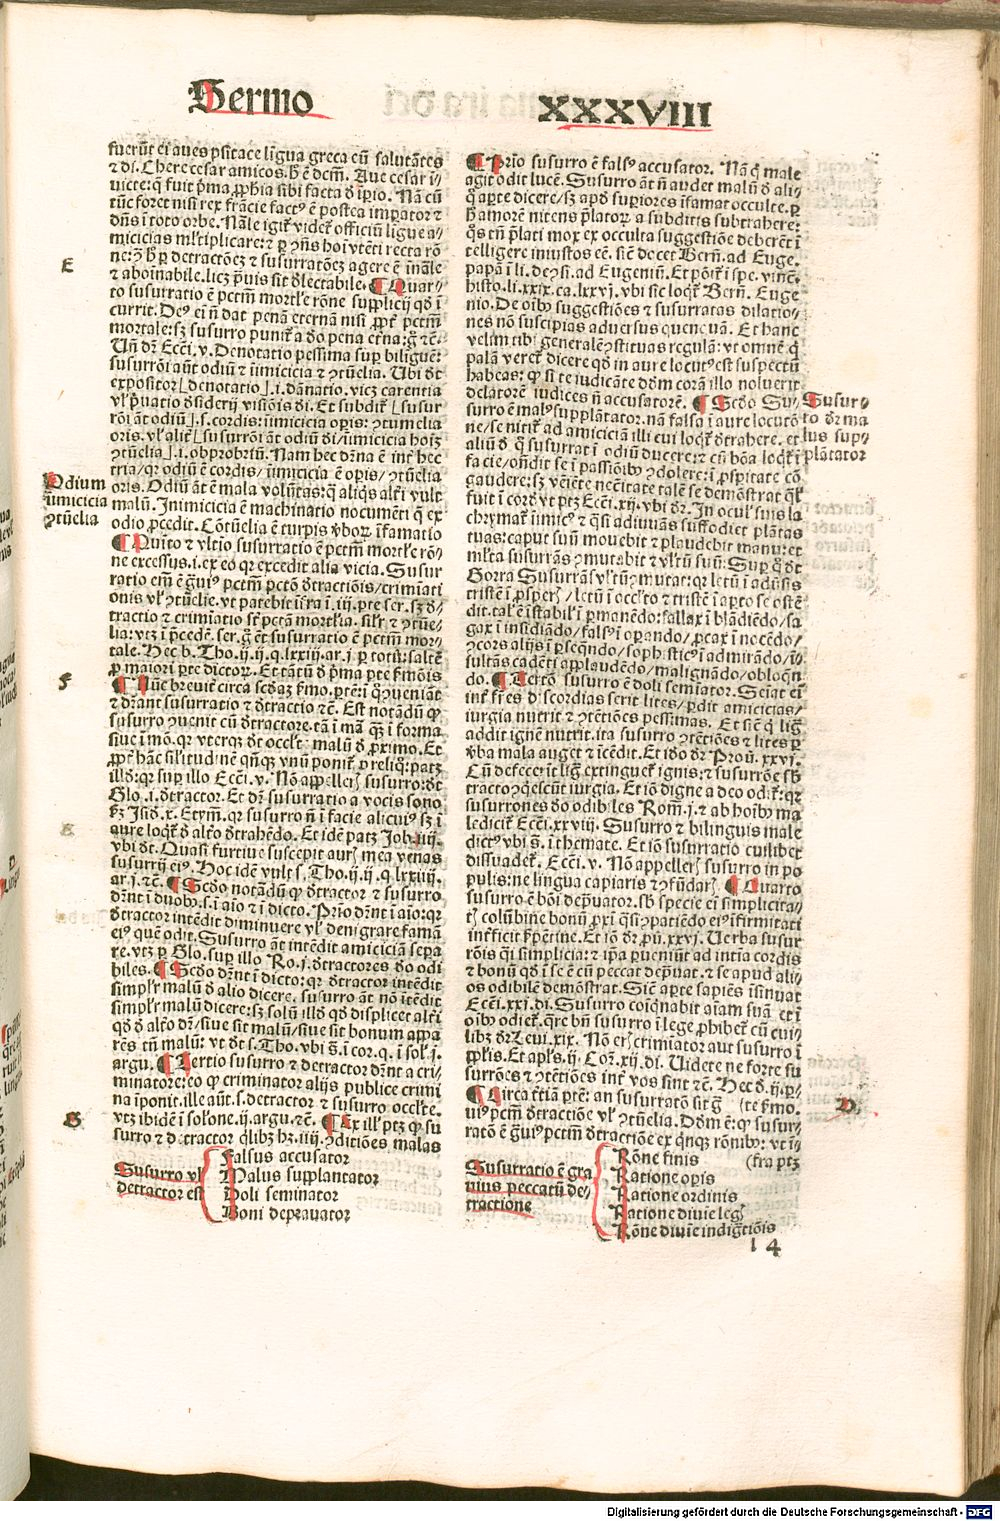 Sermo XXXVIII
fuerūt ei aues psitace lingua greca cū salutātes
⁊ di. Chere cesar amicos. h̄ ē dcm̄. Aue cesar i⸗
uicte: q̄ fuit p̄ma ꝓphia sibi facta d̄ ip̄io. Nā cū
tūc foret nisi rex frācie factꝰ ē postea imꝑator ⁊
dn̄s ī toto orbe. Nāle igit̄ videt̄ officiū ligue a⸗
micicias ml̄tiplicare: ⁊ ꝑ ꝯn̄s hoī vtēti recta rō
ne: ꝯ h̄ ꝑ detractōeꝫ ⁊ susurratōeꝫ agere ē ināle
⁊ aboīnabile. licꝫ p̄uis sit d̄lectabile. ¶ Quar⸗
to susurratio ē pctm̄ mortl̄e rōne supplicij qd̄ ī
currit. Deꝰ ei n̄ dat penā eternā nisi ꝓpt̄ pctm̄
mortale: sꝫ susurro punit̄ a d̄o pena et̄na: g̊ ⁊c̄.
Un̄ dr̄ Ecc̄i. v. Denotatio pessima suꝑ biliguē:
susurrōi aūt odiū ⁊ īimicicia ⁊ ꝯtūelia. Ubi dt̄
expositor ⌊denotatio⌋ .i. dānatio. vicꝫ carentia
vl̓ p̄uatio d̄siderij visiōis d̄i. Et subdit̄ ⌊susur
rōi āt odiū⌋ .s. cordis: īimicicia oꝑis: ꝯtumelia
oris. vl̓ alit̄ ⌊susurrōi āt odiū di/īimicicia hoīꝫ
ꝯtūelia⌋ .i. obprobriū. Nam hec d̄na ē int̄ hec
tria/qꝛ odiū ē cordis/ īimicicia ē oꝑis/ ꝯtūelia
oris. Odiū āt ē mala volūtas: q̄ aliq̄s alt̄i vult
malū. Inimicicia ē machinatio nocumēti q̄ ex
odio ꝓcedit. Cōtūelia ē turpis v̄boꝝ īfamatio
¶ Quito ⁊ vl̄tio susurratio ē pctm̄ mortl̄e rō⸗
ne excessus. i. ex eo qꝛ excedit alia vicia. Susur
ratio em̄ ē g̊uiꝰ pctm̄ pctō d̄tractiōis/crimiati
onis vl̓ ꝯtūelie. vt patebit īfra ī .iij. pte ser. sꝫ d̄⸗
tractio ⁊ crimīatio st̄ pctā mortl̄ia. sil̄r ⁊ ꝯtūe⸗
lia: vtꝫ ī p̄cedē. ser. g̊ ēt susurratio ē pctm̄ mor⸗
tale. Hec b. Tho. ij. ij. q. lxxiij. ar. j. ꝑ totū: saltē
ꝓ maiori pte dictoꝝ. Et tātū d̄ p̄ma pte s̄mōis
¶ Nūc breuit̄ circa scd̄aꝫ s̄mo. ptē: ī q̊ ꝯueniāt
⁊ dr̄ant susurratio ⁊ d̄tractio ⁊c̄. Est notādū ꝙ
susurro ꝯuenit cū d̄tractore. tā ī mā q̄ꝫ ī forma
siue ī mō. qꝛ vterqꝫ dt̄ occlt̄e malū d̄ ꝓximo. Et
ꝓpt̄ hāc sil̄itudinē qn̄qꝫ vnū ponit̄ ꝓ reliq̊: patꝫ
ill̓d: qꝛ suꝑ illo Ecc̄i. v. Nō appelleꝭ susurro: dt̄
Glo. i. d̄tractor. Et dr̄ susurratio a vocis sono
ẜm Isid. x. Etym̄. qꝛ susurro n̄ ī facie alicuiꝰ sꝫ ī
aure loqt̄ d̄ alt̄o d̄trahēdo. Et idē patꝫ Job. iiij.
vbi dt̄. Quasi furtiue suscepit aurꝭ mea venas
susurrij eiꝰ. Hoc idē vult s. Tho. ij. ij. q. lxxiiij.
ar. j. ⁊c̄. ¶ Scd̄o notādū ꝙ d̄tractor ⁊ susurro
dr̄nt ī duobꝰ. s. ī aīo ⁊ ī dicto. Prio dr̄nt ī aīo: qꝛ
d̄tractor intēdit diminuere vl̓ denigrare famā
eiꝰ quē odit. Susurro āt intēdit amiciciā sepa
re. vtꝫ ꝑ Glo. suꝑ illo Ro. j. d̄tractores d̄o odi
biles. ¶ Scd̄o dr̄nt ī dicto: qꝛ d̄tractor intēdit
simpl̄r malū d̄ alio dicere. susurro āt nō itēdit
simpl̄r malū dicere: sꝫ solū ill̓d qd̄ displicet alt̄i
qd̄ d̄ alt̄o dr̄/siue sit malū/siue sit bonum appa
rēs tn̄ malū: vt dt̄ s. Tho. vbi s̄. ī cor. q. ī sol̓. j.
argu. ¶ Tertio susurro ⁊ detractor dr̄nt a cri⸗
minatore: eo ꝙ criminator alijs publice crimi
na īponit. ille aūt. s. detractor ⁊ susurro occlt̄e.
vtꝫ ibidē ī sol̓one. ij. argu. ⁊c̄. ¶ Ex ill̓ ptꝫ ꝙ su
surro ⁊ detractor qͥlibꝫ hꝫ. iiij. ꝯditiōes malas
Susurro vl̓
detractor est
Falsus accusator
Malus supplantator
Doli seminator
Boni deprauator
E
Odium
īimicicia
ꝯtūelia
F
G
¶ Prīo susurro ē falsꝰ accusator. Nā q̄ male
agit odit lucē. Susurro āt n̄ audet malū d̄ ali⸗
q̊ apte dicere/ sꝫ apd̄ suꝑiores īfamat occulte. ꝑ
h̄ amorē nitens p̄latoꝝ a subditis subtrahere:
q̊s tn̄ p̄lati mox ex occulta suggestiōe deberēt ī
telligere iniustos eē. sic̄ decet Bern̄. ad Euge.
papā ī li. de ꝯsi. ad Eugeniū. Et pōit̄ ī spe. vincē.
histo. li. xxix. ca. lxxvj. vbi sic loqt̄ Bern̄. Euge
nio. De oībꝰ suggestiōes ⁊ susurratas dilatio⸗
nes nō suscipias aduersus quenꝙuā. Et hanc
velim tibi generalē ꝯstituas regulā: vt omnē q̄
palā veret̄ dicere qd̄ in aure locutꝰ est suspectū
habeas: ꝙ si te iudicāte d̄dm̄ corā illo noluerit
delatorē iudices n̄ accusatorē. ¶ Scd̄o Su⸗
surro ē malꝰ supplātator. nā falsa ī aure locutō
ne/se nitit̄ ad amiciciā illi cui loqt̄ d̄trahere. et
aliū d̄ q̊ susurrat ī odiū ducere: ⁊ cū bōa loqt̄ ī
facie/ondit se ī passiōibꝰ ꝯdolere: ī ꝓspitate cō
gaudere: sꝫ veiēte necitate talē se demōstrat q̄l̓
fuit ī cord̄ vt ptꝫ Ecc̄i. xij. vbi dr̄. In ocul̓ suis la
chrymat̄ īimicꝰ ⁊ q̄si adiuuās suffodiet plātas
tuas: caput suū mouebit ⁊ plaudebit manu: et
ml̄ta susurrās ꝯmutabit ⁊ vl̄tū suū: Suꝑ q̊ dt̄
Gorra Susurrās vl̄tū ꝯmutat: qꝛ letū ī aduꝭsis
tristē ī ꝓsperꝭ/ letū ī occl̄to ⁊ tristē ī apto se ostē
dit. talē ē īstabil̓ ī ꝑmanēdo: fallax ī blādiēdo/sa
gax ī insidiādo/ falsꝰ ī oꝑando/ ꝓcax ī nocēdo/
ꝯcors alijs ī ꝑseqn̄do/ sophꝭsticꝰ ī admirādo/ in
sultās cadēti applaudēdo/ malignādo/ obloqn̄
do. ¶ Tertō susurro ē doli semiator. Sciat ei
int̄ fr̄es discordias serit lites/ ꝑdit amicicias/
iurgia nutrit ⁊ ꝯtētiōes pessimas. Et sic̄ q̄ lig̊
addit ignē nutrit. ita susurro ꝯtētiōes ⁊ lites ꝑ
v̄ba mala auget ⁊ īcēdit. Et iō dr̄ Prou. xxvj.
Cū defecerīt lig̊ extinguet̄ ignis: ⁊ susurrōe sb̄
tracto ꝯq̄escūt iurgia. Et iō digne a deo odit̄: qꝛ
susurrones d̄o odibiles Rom̄. j. ⁊ ab hoībꝰ ma
ledicit̄ Ecc̄i. xxviij. Susurro ⁊ bilinguis male
dictꝰ vbi s̄. ī themate. Et iō susurratio cuilibet
dissuadet̄. Ecc̄i. v. Nō appellerꝭ susurro in po
pulis: ne lingua capiaris ⁊ ꝯfūdarꝭ. ¶ Quarto
susurro ē bōi dep̄uator. sb̄ specie ei simplicita⸗
tꝭ colūbine bonū ꝓxi q̄si ꝯpatiēdo eiꝰ īfirmitati
intficit ꝑꝑerine. Et iō dr̄ ꝓū. xxvj. Uerba susur
rōis q̄si simplicia: ⁊ ip̄a ꝑueniūt ad intīa cordis
⁊ bonū qd̄ ī se ē cū peccat dep̄uat. ⁊ se apud ali⸗
os odibilē demōstrat. Sic̄ apte sapiēs īsinuat
Ecc̄i. xxi. di. Susurro coiq̄nabit aīam suā et ī
oībꝰ odiet̄. q̄re bn̄ susurro ī lege ꝓhibet̄ cū cui⸗
libꝫ dr̄ Leui. xix. Nō erꝭ crimiator aut susurro ī
pp̄lis. Et apl̄s. ij. Cor̄. xij. di. Uidete ne forte su
surrōes ⁊ ꝯtētiōes int̄ vos sint ⁊c̄. Hec d̄. ij. p⸗
¶ Circa t̄tiā ptē: an susurratō sit g̊ (te s̄mo.
uiꝰ pctm̄ d̄tractiōe vl̓ ꝯtūelia. Dd̄m ē: ꝙ susur⸗
ratō ē g̊uiꝰ pctm̄ d̄tractiōe ex qn̄qꝫ rōnibꝰ: vt ī⸗
(fra ptꝫ
Susurratio ē gra
uius peccatū de⸗
tractione
Rōne finis
Ratione opis
Ratione ordinis
Ratione diuīe legꝭ
Rōne diuīe indig̊tiōis
Susur⸗
ro dr̄ ma
lus sup⸗
plātator
D
l 4
Digitalisierung gefördert durch die Deutsche Forschungsgemeinschaft - DFG